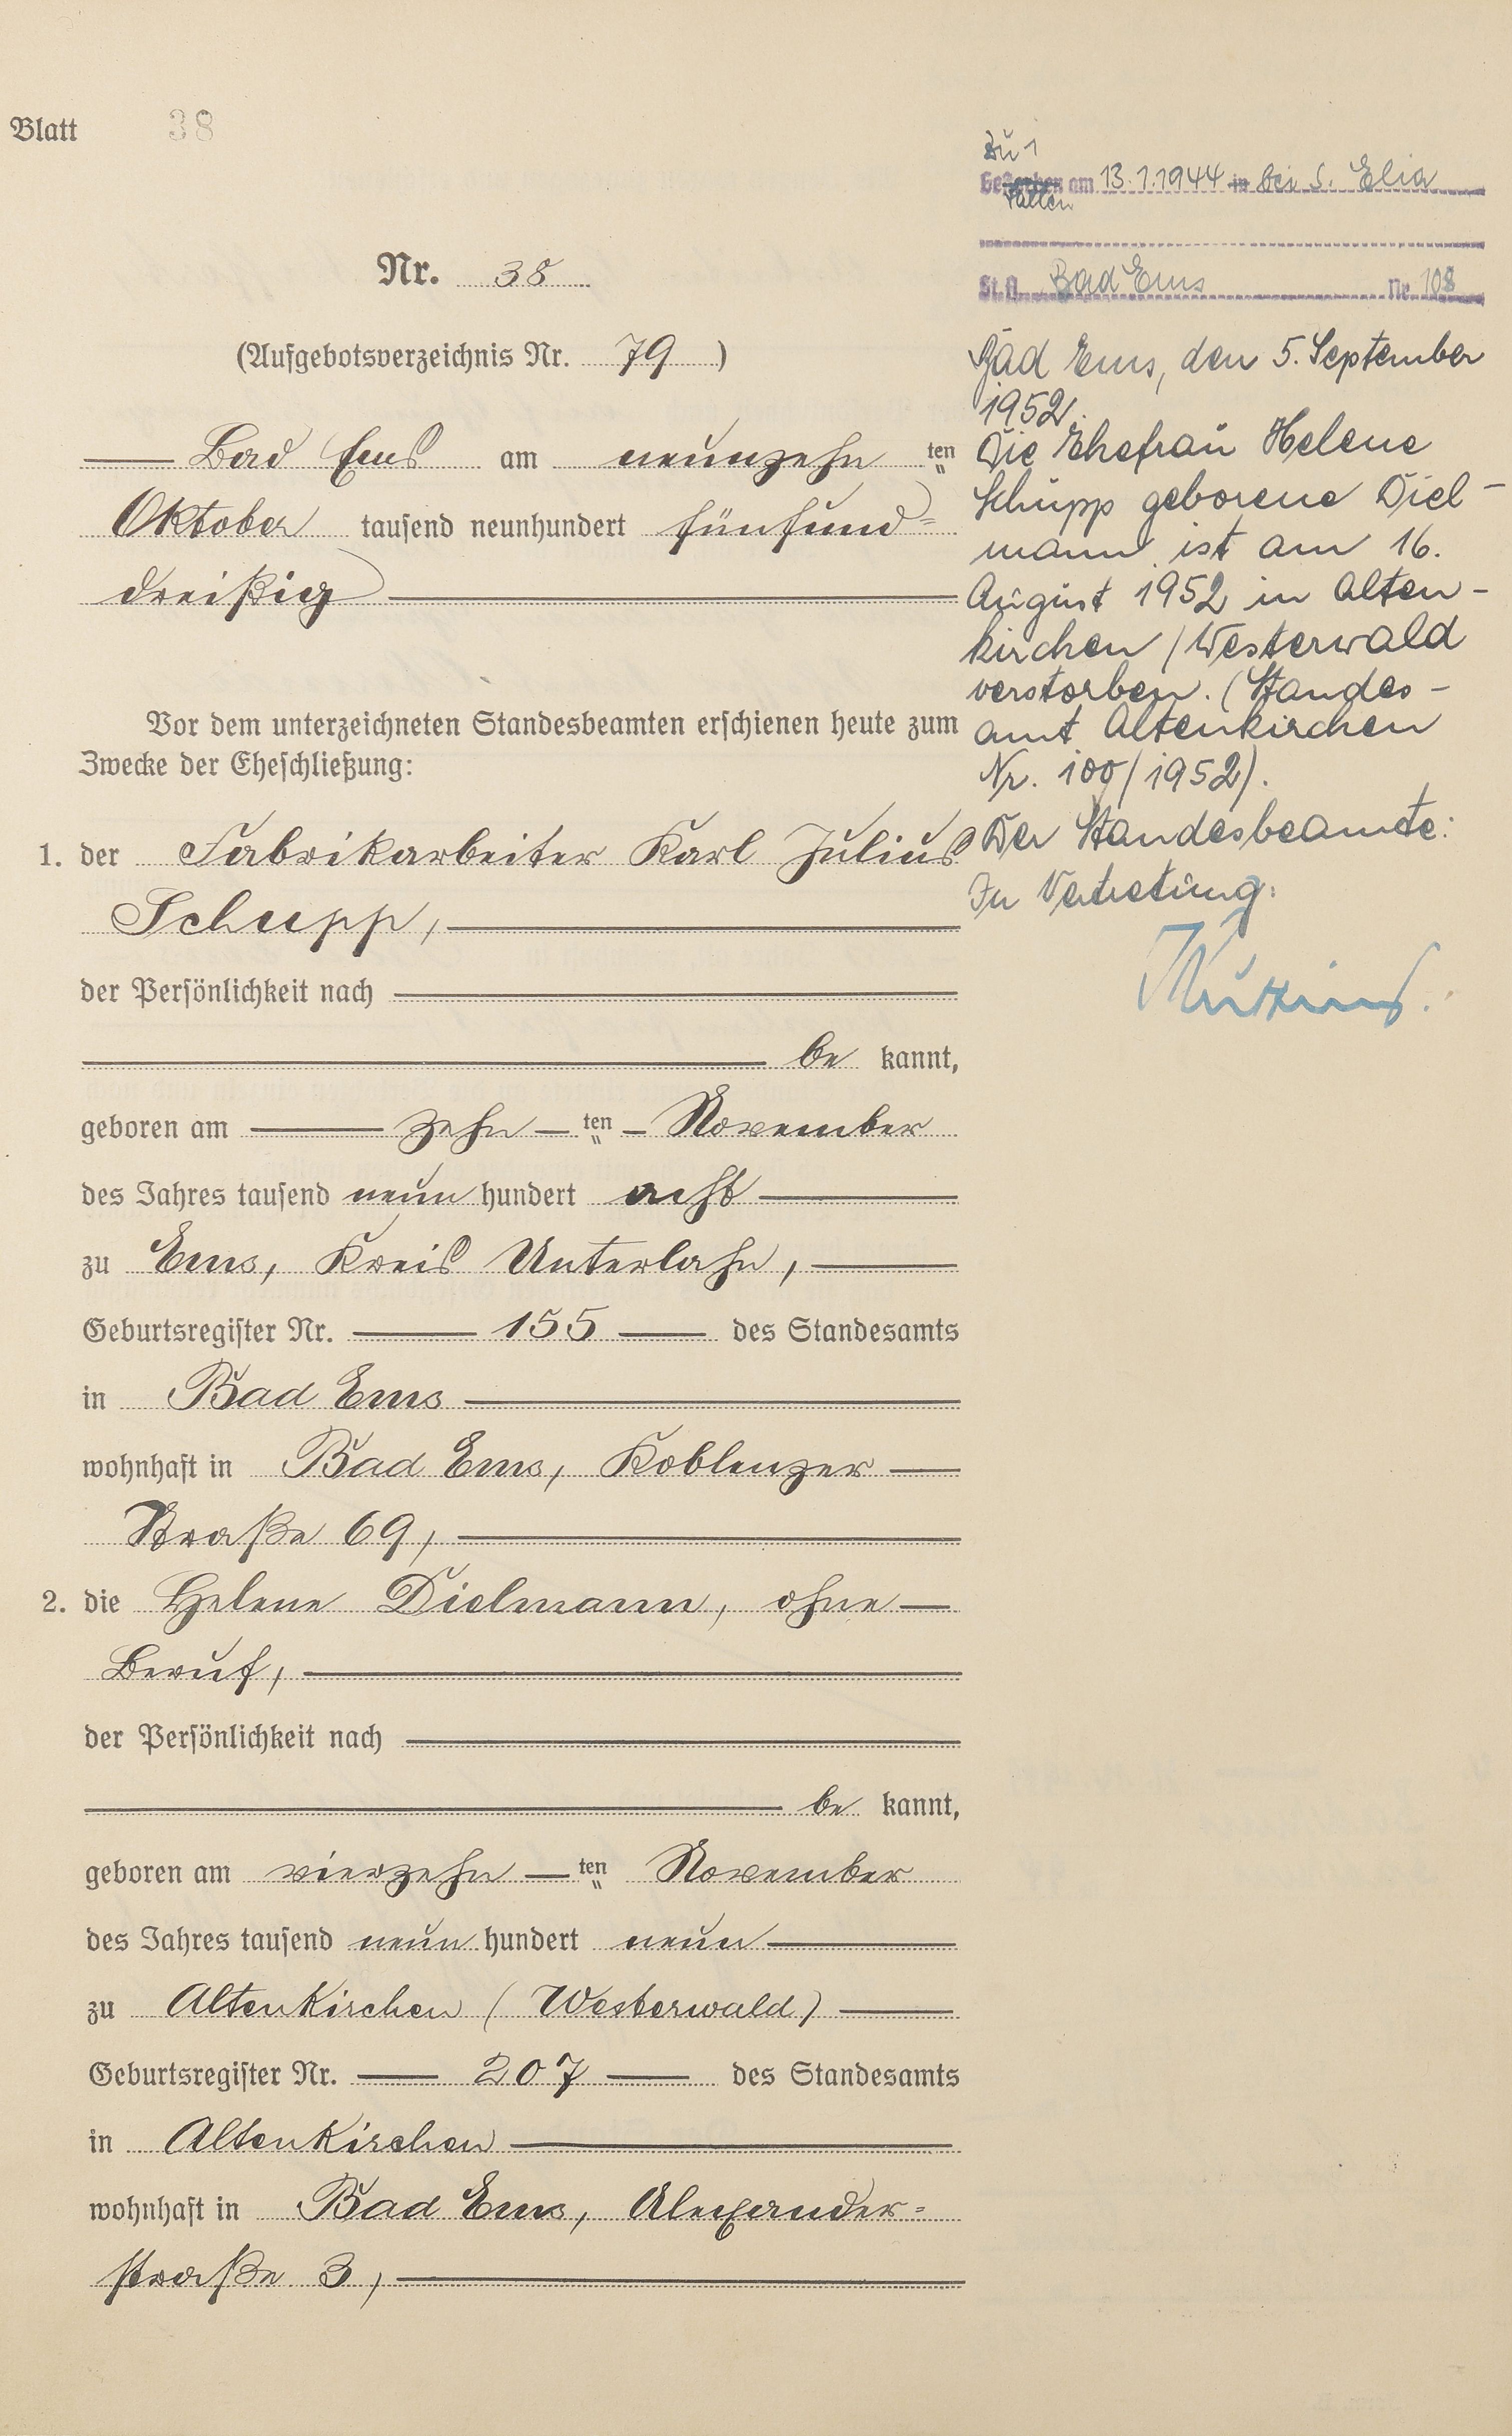 Blatt 38
Nr. 38
(Aufgebotsverzeichnis Nr. 79)
Bad Ems am neunzehn ten
Oktober tausend neunhundert fünfund=
dreißig
Vor dem unterzeichneten Standesbeamten erschienen heute zum
Zwecke der Eheschließung:
1. der Fabrikarbeiter Karl Julius
Schupp,
der Persönlichkeit nach
be kannt,
geboren am zehn ten November
des Jahres tausend neun hundert acht
zu Ems, Kreis Unterlahn,
Geburtsregister Nr. 155 des Standesamts
in Bad Ems
wohnhaft in Bad Ems, Koblenzer
Straße 69,
2. die Helene Dielmann, ohne
Beruf,
der Persönlichkeit nach
be kannt,
geboren am vierzehn ten November
des Jahres tausend neun hundert neun
zu Altenkirchen (Westerwald)
Geburtsregister Nr. 207 des Standesamts
in Altenkirchen
wohnhaft in Bad Ems, Alexander=
straße 3,
Zu 1
Gestorben am 13.1.1944 in bei S. Elia
fallen
St.A. Bad Ems Nr. 108
Bad Ems, den 5. September
1952.
Die Ehefrau Helene
Schupp geborene Diel-
mann ist am 16.
August 1952 in Alten-
kirchen/Westerwald
verstorben. (Standes-
amt Altenkirchen
Nr. 100/1952).
Der Standesbeamte:
In Vertretung: